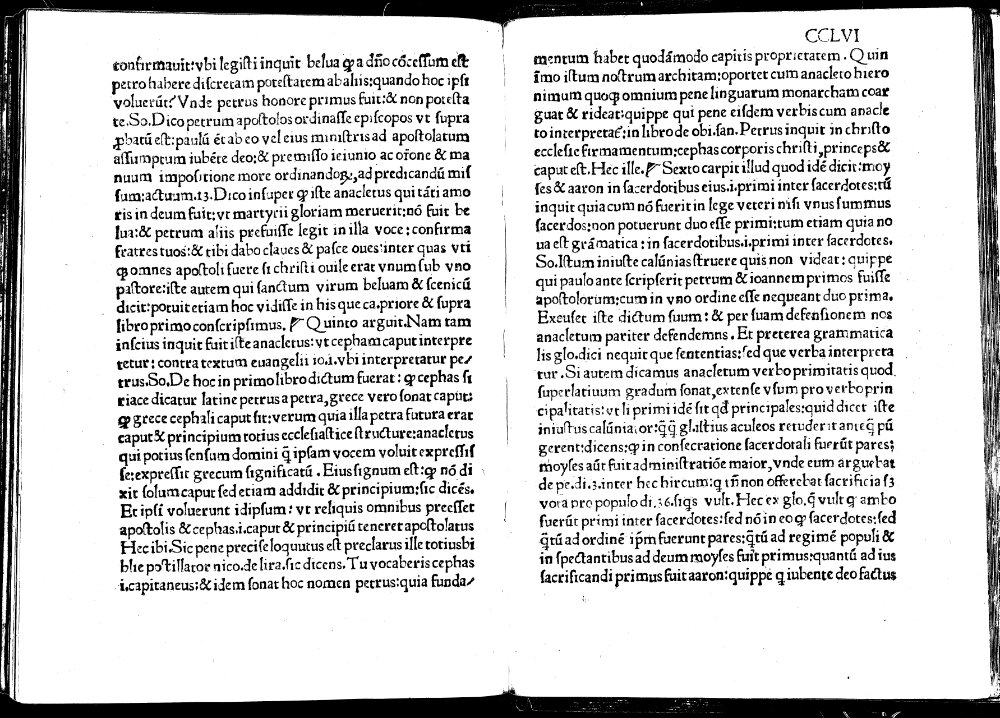 confirmauit:vbi legisti inquit belua ꝙ a dño cõcessum est
petro habere discretam potestatem ab aliis:quando hoc ipsi
voluerũt? Vnde petrus honore primus fuit:& non potesta
te.So.Dico petrum apostolos ordinasse episcopos vt supra
ꝓbatũ est:paulũ et ab eo vel eius ministris ad apostolatum
assumptum iubẽte deo:& premisso ieiunio ac orõne & ma
nuum impositione more ordinandoꝝ,ad predicandũ mis
sum:actuum.13.Dico insuper ꝙ iste anacletus qui tãti amo
ris in deum fuit:vt martyrii gloriam meruerit:nõ fuit be
lua:& petrum aliis prefuisse legit in illa voce:confirma
fratres tuos:& tibi dabo claues & pasce oues:inter quas vti
ꝙ omnes apostoli fuere si christi ouile erat vnum sub vno
pastore:iste autem qui sanctum virum beluam & scenicũ
dicit:potuit etiam hoc vidisse in his que ca.priore & supra
libro primo conscripsimus. Quinto arguit.Nam tam
inscius inquit fuit iste anacletus:vt cepham caput interpre
tetur:contra textum euangelii io.i.vbi interpretatur pe/
trus.So.De hoc in primo libro dictum fuerat:ꝙ cephas si
riace dicatur latine petrus a petra,grece vero sonat caput:
ꝙ grece cephali caput sit:verum quia illa petra futura erat
caput & principium totius ecclesiastice structure:anacletus
qui potius sensum domini q̃ ipsam vocem voluit expressis
se:expressit grecum significatũ.Eius signum est:ꝙ nõ di
xit solum caput sed etiam addidit & principium:sic dicẽs.
Et ipsi voluerunt idipsum:vt reliquis omnibus preesset
apostolis & cephas.i.caput & principiũ teneret apostolatus
Hec ibi.Sic pene precise loquutus est preclarus ille totius bi
blie postillator nico.de lira,sic dicens.Tu vocaberis cephas
i.capitaneus:& idem sonat hoc nomen petrus:quia funda/
CCLVI
mentum habet quodãmodo capitis proprietatem.Quin
ĩmo istum nostrum architam:oportet cum anacleto hiero
nimum quoqꝫ omnium pene linguarum monarcham coar
guat & rideat:quippe qui pene eisdem verbis cum anacle
to interpretat̃:in libro de obi.san.Petrus inquit in christo
ecclesie firmamentum:cephas corporis christi,princeps &
caput est.Hec ille. Sexto carpit illud quod idẽ dicit:moy
ses & aaron in sacerdotibus eius.i.primi inter sacerdotes:tũ
inquit quia cum nõ fuerit in lege veteri nisi vnus summus
sacerdos:non potuerunt duo esse primi:tum etiam quia no
ua est grãmatica:in sacerdotibus.i.primi inter sacerdotes.
So.Istum iniuste calũnias struere quis non videat:quippe
qui paulo ante scripserit petrum & ioannem primos fuisse
apostolorum:cum in vno ordine esse nequeant duo prima.
Excuset iste dictum suum:& per suam defensionem nos
anacletum pariter defendemus.Et preterea grammatica
lis glo.dici nequit que sententias:sed que verba interpreta
tur.Si autem dicamus anacletum verbo primitatis quod
superlatiuum gradum sonat,extense vsum pro verbo prin
cipalitatis:vt li primi idẽ sit qd̃ principales:quid dicet iste
iniustus calũniator:q̃q̃ gl.istius aculeos retuderit anteq̃ pũ
gerent:dicens:ꝙ in consecratione sacerdotali fuerũt pares;
moyses aũt fuit administratiõe maior,vnde eum arguebat
de pe.di.3.inter hec hircum:q tñ non offerebat sacrificia sꝫ
vota pro populo di.36.siqs vult.Hec ex glo.q̃ vult ꝙ ambo
fuerũt primi inter sacerdotes:sed nõ in eo ꝙ sacerdotes:sed
q̃tũ ad ordinẽ ip̃m fuerunt pares:q̃tũ ad regimẽ populi &
in spectantibus ad deum moyses fuit primus:quantũ ad ius
sacrificandi primus fuit aaron:quippe q iubente deo factus